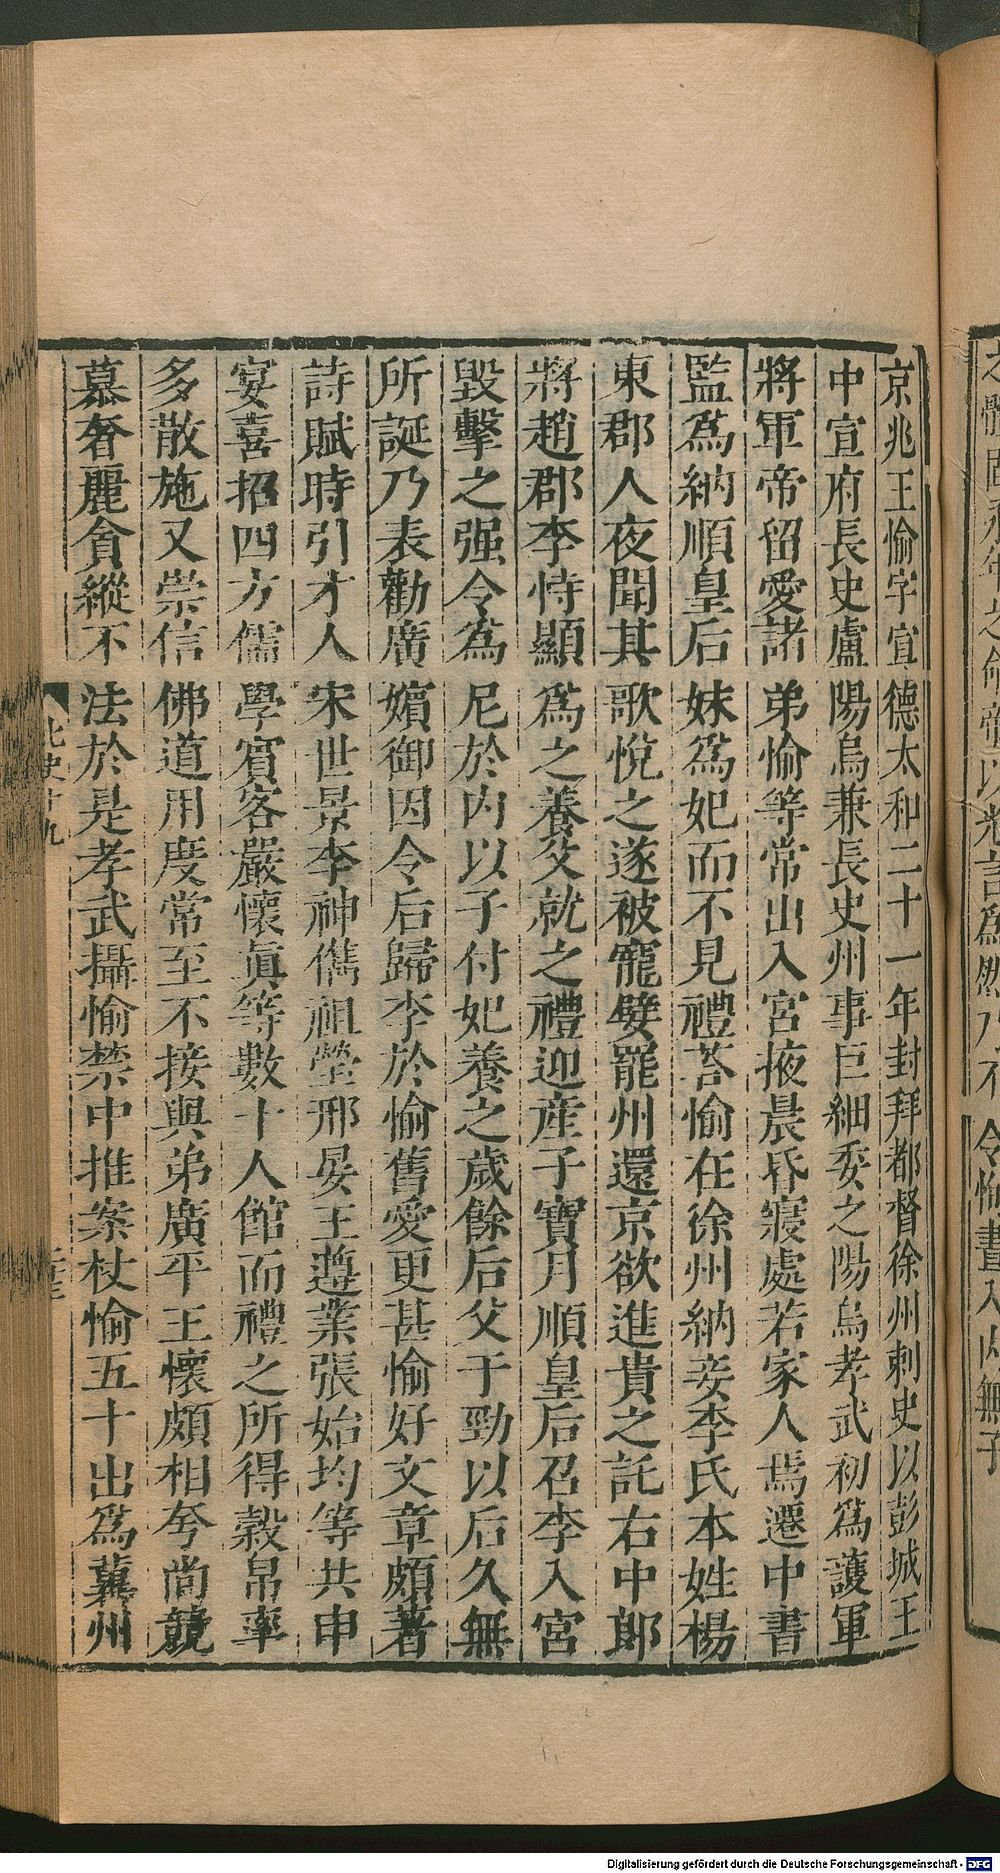 京兆王愉字宣德太和二十一年封拜都督徐州刺史以彭城王
中宣府長史盧陽烏兼長史州事巨細委之陽烏孝武初爲護軍
將軍帝留愛諸弟愉等常出入宮掖晨昏寢處若家人焉遷中書
監爲納順皇后妹爲妃而不見禮荅愉在徐州納妾李氏本姓楊
東郡人夜聞其歌悅之遂被寵嬖罷州還京欲進貴之託右中郎
將趙郡李恃顯爲之養父就之禮迎産子寶月順皇后召李入宮
毀擊之强令爲尼於内以子付妃養之歲餘后父于勁以后久無
所誕乃表勸廣嬪御因令后歸李於愉舊愛更甚愉好文章頗著
詩賦時引才人宋世景李神儁祖瑩邢晏王遵業張始均等共申
宴喜招四方儒學賓客嚴懷眞等數十人館而禮之所得穀帛率
多散施又崇信佛道用度常至不接與弟廣平王懷頗相夸尚競
慕奢麗貪縱不法於是孝武攝愉禁中推案杖愉五十出爲冀州
北史十九
Digitalisierung gefördert durch die Deutsche Forschungsgemeinschaft - DFG